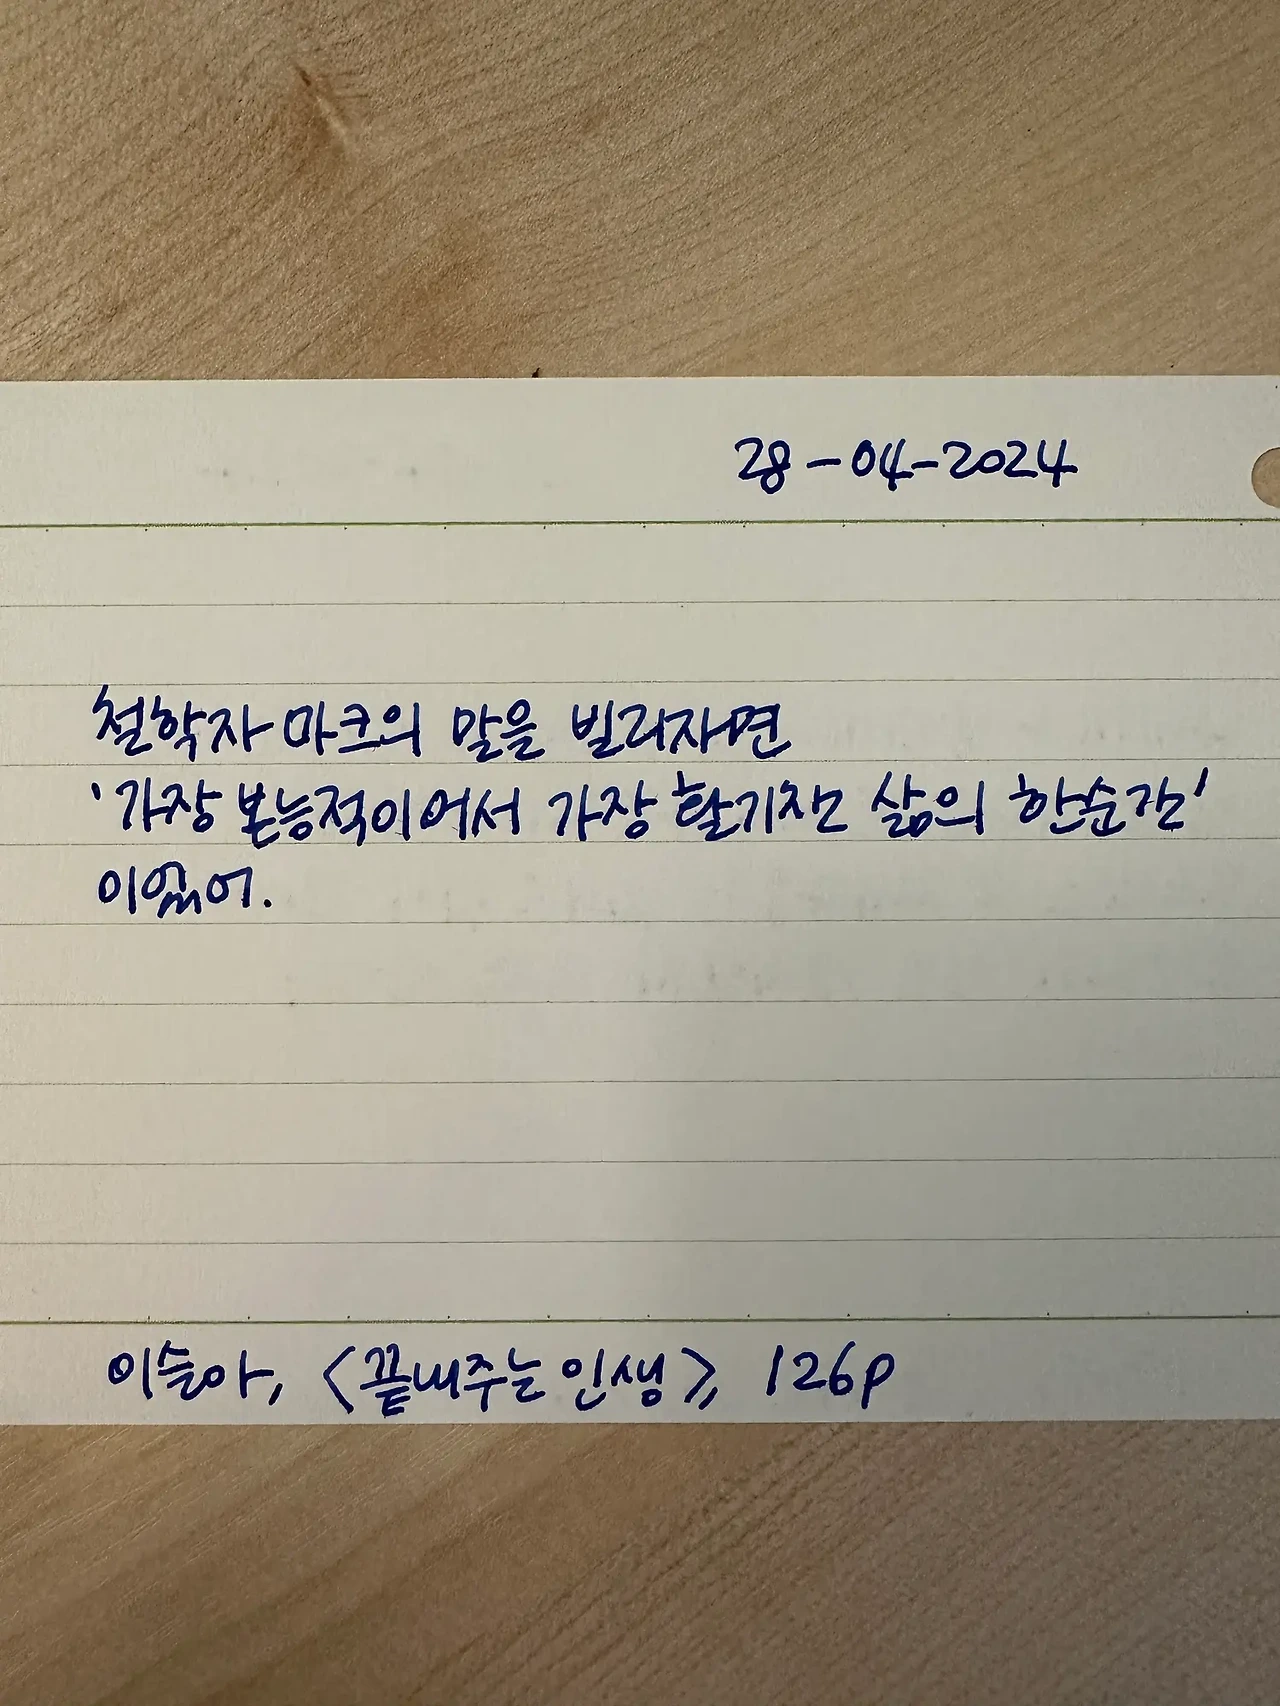 28-04-2024
철학자 마크의 말을 빌리자면
'가장 본능적이어서 가장 활기찬 삶의 한순간'
이었어.
이슬아, <끝내주는 인생>, 126p